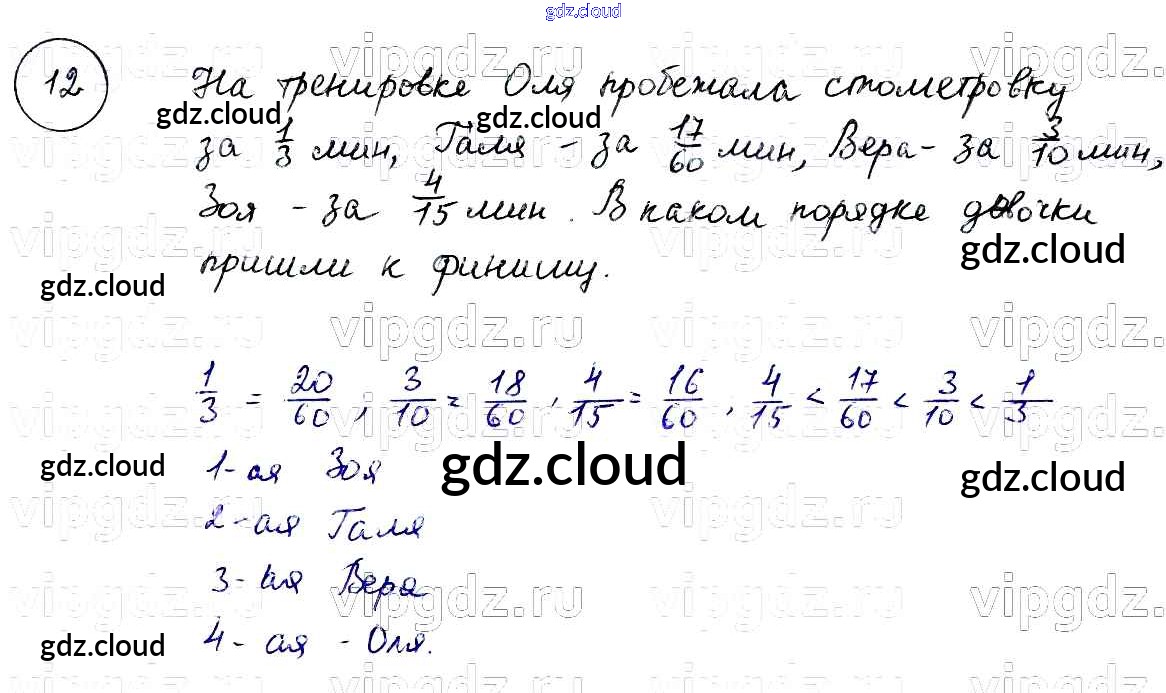 gdz.cloud
12 На тренировке Оля пробежала стометровку
за 1/3 мин, Галя - за 17/60 мин, Вера - за 3/10 мин,
Зоя - за 4/15 мин. В каком порядке девочки
пришли к финишу.
1/3 = 20/60, 3/10 = 18/60, 4/15 = 16/60, 4/15 < 17/60 < 3/10 < 1/3
1-ая Зоя
2-ая Галя
3-ая Вера
4-ая - Оля.
gdz.cloud
gdz.cloud
gdz.cloud
gdz.cloud
gdz.cloud
gdz.cloud
gdz.cloud
gdz.cloud
gdz.cloud
vipgdz.ru
vipgdz.ru
vipgdz.ru
vipgdz.ru